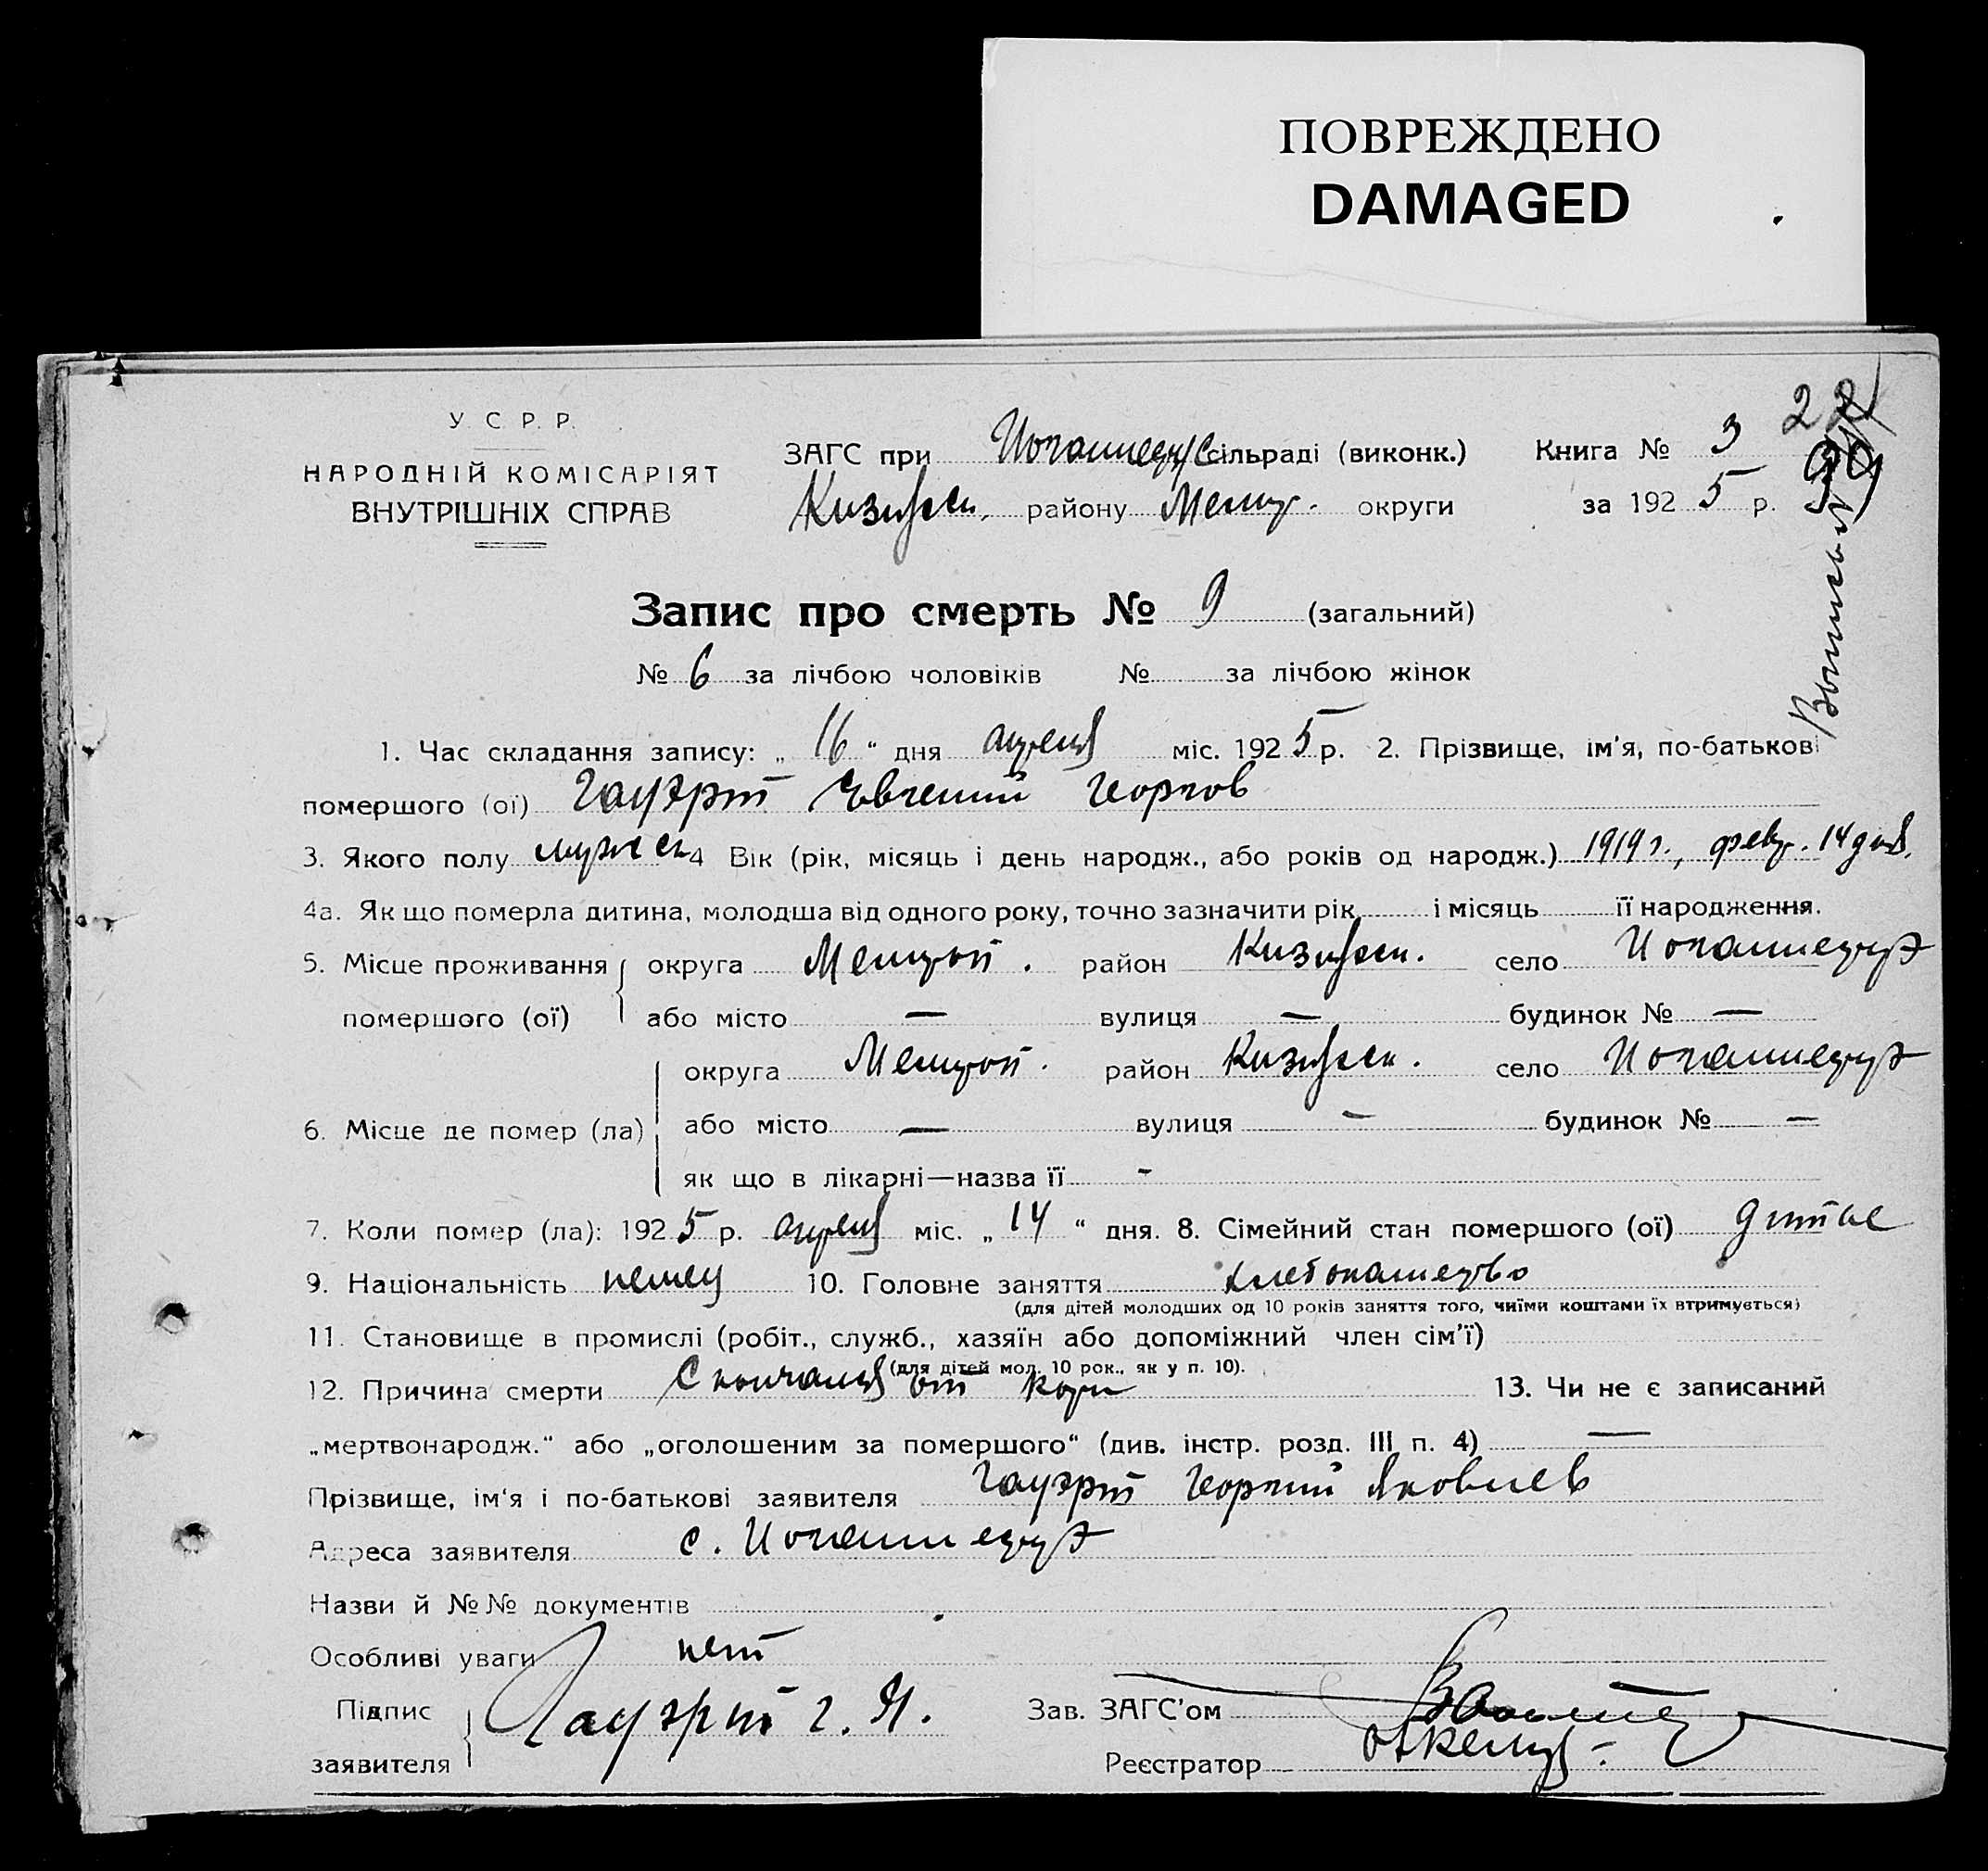 ПОВРЕЖДЕНО
DAMAGED
У. С. Р. Р.
НАРОДНІЙ КОМІСАРІЯТ
ВНУТРІШНІХ СПРАВ
ЗАГС при сільраді (виконк.) Книга № 3
району округи за 192 5 р.
22
Запис про смерть № 9 (загальний)
№ 6 за лічбою чоловіків № за лічбою жінок
1. Час складання запису: „ 16 “ дня апреля міс. 192 5 р. 2. Прізвище, ім'я, по-батькові
помершого (ої) Гауэрт Евгений Георгов
3. Якого полу мужеск 4 Вік (рік, місяць і день народж., або років од народж.) 1919 г., февр. 14 дня.
4а. Як що померла дитина, молодша від одного року, точно зазначити рік і місяць її народження.
5. Місце проживання округа район село
помершого (ої) або місто — вулиця — будинок № —
округа район село
6. Місце де помер (ла) або місто — вулиця – будинок № —
як що в лікарні—назва її -
7. Коли помер (ла): 192 5 р. апреля міс. „ 14 “ дня. 8. Сімейний стан помершого (ої) дитые
9. Національність немец 10. Головне заняття хлебопашество
(для дітей молодших од 10 років заняття того, чиїми коштами їх втримується)
11. Становище в промислі (робіт., служб., хазяїн або допоміжний член сім'ї)
(для дітей мол. 10 рок., як у п. 10).
12. Причина смерти Скончался от кори 13. Чи не є записаний
„мертвонародж.“ або „оголошеним за помершого“ (див. інстр. розд. III п. 4) —
Прізвище, ім'я і по-батькові заявителя Гауэрт Георгий Яковлев
Адреса заявителя с.
Назви й №№ документів
Особливі уваги нет
Підпис Гауэрт Г. Я. Зав. ЗАГС'ом
заявителя Реєстратор